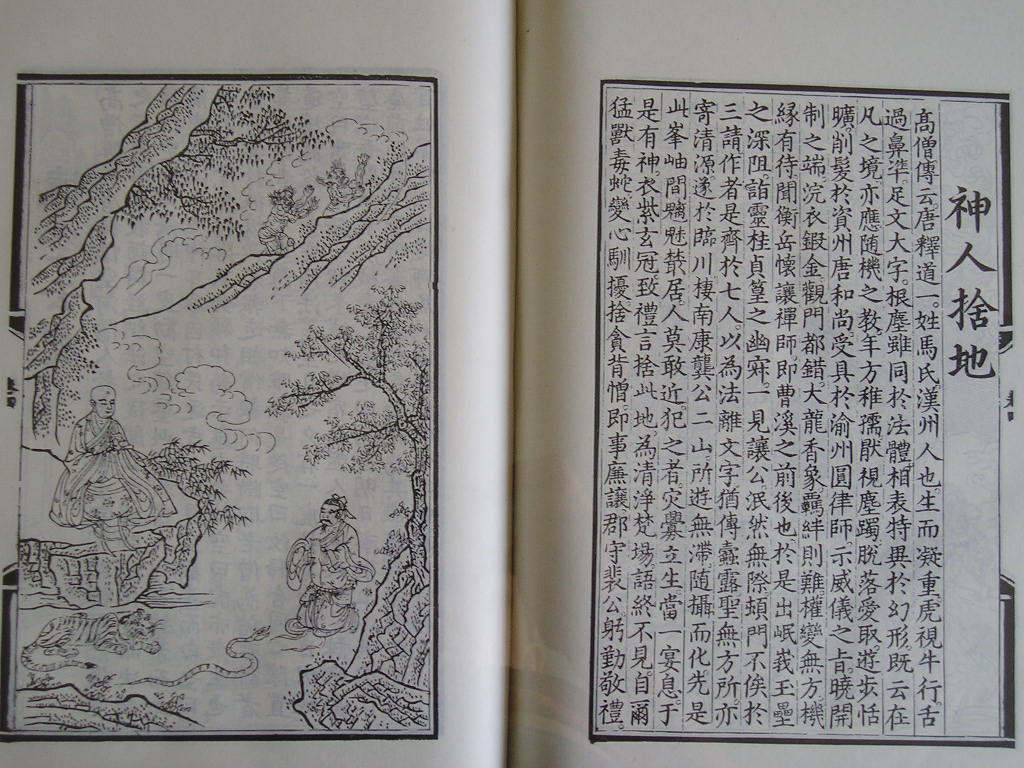 神人捨地
高僧傳云唐釋道一。姓馬氏漢州人也。生而凝重。虎視牛行。舌
過鼻準。足文大字。根塵雖同於法體。相表特異於幻形。既云在
凡之境。亦應随機之教。年方稚孺。厭視塵躅。脫落愛取。遊步恬
曠。削髮於資州唐和尚。受具於渝州圓律師。示威儀之旨。曉開
制之端。浣衣鍛金。觀門都錯。大龍香象。羈絆則難。權變無方。機
緣有待。聞衡岳懷讓禪師。即曹溪之前後也。於是出岷峩玉壘
之深阻。詣靈桂貞篁之幽寂。一見讓公。泯然無際。頓門不俟於
三請。作者是齊於七人。以為法離文字。猶傳蠹露。聖無方所。亦
寄清源。遂於臨川棲南康龔公二山。所遊無滯。随攝而化。先是
此峯岫間。魑魅叢居。人莫敢近。犯之者。灾舋立生。當一宴息于
是。有神衣紫玄冠。致禮言。捨此地為清淨梵場。語終不見。自爾
猛獸毒蛇。變心馴擾。捨貪背憎。即事廉讓。郡守裴公。躬勤敬禮。